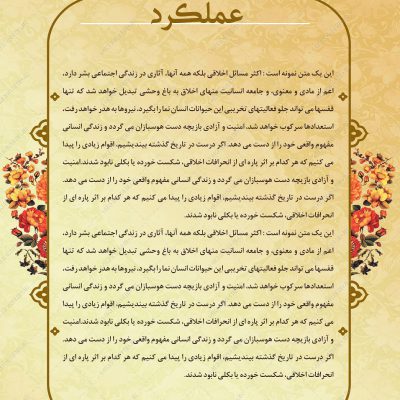 عملکرد
این یک متن نمونه است : اکثر مسائل اخلاقی بلکه همه آنها، آثاری در زندگی اجتماعی بشر دارد،
اعم از مادی و معنوی، و جامعه انسانیت منهای اخلاق به باغ وحشی تبدیل خواهد شد که تنها
قفسها می تواند جلو فعالیتهای تخریبی این حیوانات انسان نما را بگیرد، نیروها به هدر خواهد رفت،
استعدادها سرکوب خواهد شد، امنیت و آزادی بازیچه دست هوسبازان می گردد و زندگی انسانی
مفهوم واقعی خود را از دست می دهد. اگر درست در تاریخ گذشته بیندیشیم، اقوام زیادی را پیدا
می کنیم که هر کدام بر اثر پاره ای از انحرافات اخلاقی، شکست خورده یا بکلی نابود شدند.امنیت
و آزادی بازیچه دست هوسبازان می گردد و زندگی انسانی مفهوم واقعی خود را از دست می دهد.
اگر درست در تاریخ گذشته بیندیشیم، اقوام زیادی را پیدا می کنیم که هر کدام بر اثر پاره ای از
انحرافات اخلاقی، شکست خورده یا بکلی نابود شدند.
این یک متن نمونه است : اکثر مسائل اخلاقی بلکه همه آنها، آثاری در زندگی اجتماعی بشر دارد،
اعم از مادی و معنوی، و جامعه انسانیت منهای اخلاق به باغ وحشی تبدیل خواهد شد که تنها
قفسها می تواند جلو فعالیتهای تخریبی این حیوانات انسان نما را بگیرد، نیروها به هدر خواهد رفت،
استعدادها سرکوب خواهد شد، امنیت و آزادی بازیچه دست هوسبازان می گردد و زندگی انسانی
مفهوم واقعی خود را از دست می دهد. اگر درست در تاریخ گذشته بیندیشیم، اقوام زیادی را پیدا
می کنیم که هر کدام بر اثر پاره ای از انحرافات اخلاقی، شکست خورده یا بکلی نابود شدند.امنیت
و آزادی بازیچه دست هوسبازان می گردد و زندگی انسانی مفهوم واقعی خود را از دست می دهد.
اگر درست در تاریخ گذشته بیندیشیم، اقوام زیادی را پیدا می کنیم که هر کدام بر اثر پاره ای از
انحرافات اخلاقی، شکست خورده یا بکلی نابود شدند.